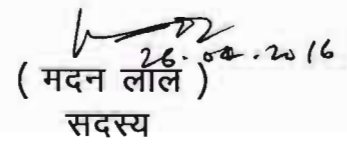 26.04.2016
( मदन लाल )
सदस्य